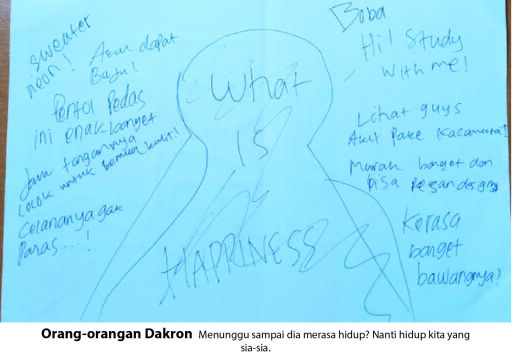 sweater
neon!
Akun dapat
Baju!
Pentol Pedas
ini enak banget
Jam tangannya
cocok untuk semua kulit!
Celananya gak
Panas...!
What
IS
HAPPINESS
Boba
Hi! Study
With me!
Lihat guys
Aku Pake Kacamata!
Murah banget dan
bisa pesan design
Kerasa
banget
bawangnya?
Orang-orangan Dakron Menunggu sampai dia merasa hidup? Nanti hidup kita yang
sia-sia.